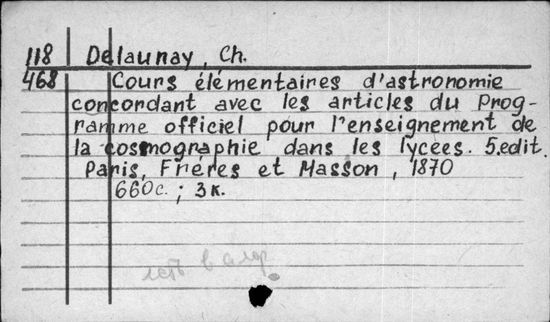 118 Delaunay, Ch.
468 Cours élémentaires d'astronomie
concordant avec les articles du Prog-
ramme officiel pour l'enseignement de
la cosmographie dans les lycées. 5.edit.
Paris, Fréres et Masson, 1870
660c. ; 3к.
есть в алф.